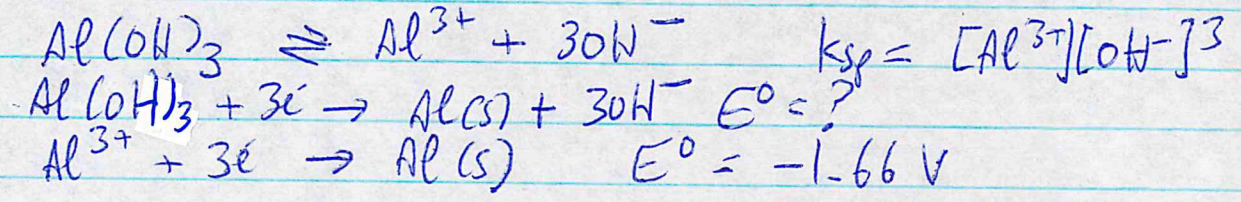 Al(OH)₃ ⇌ Al³⁺ + 3OH⁻ ksp = [Al³⁺][OH⁻]³
Al(OH)₃ + 3e⁻ → Al(s) + 3OH⁻ E⁰ = ?
Al³⁺ + 3e⁻ → Al(s) E⁰ = -1.66 V